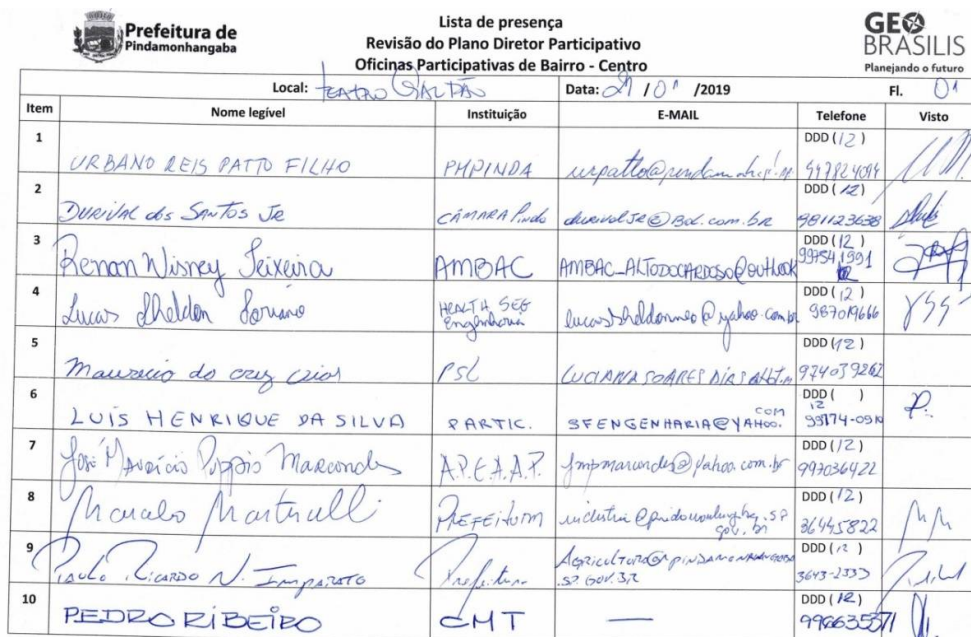 Prefeitura de
Pindamonhangaba
Lista de presença
Revisão do Plano Diretor Participativo
Oficinas Participativas de Bairro - Centro
GEO
BRASILIS
Planejando o futuro
Local: TEATRO GALPÃO Data: 21 / 01 /2019 Fl. 01
Item Nome legível Instituição E-MAIL Telefone Visto
1 URBANO REIS PATTO FILHO PMPINDA DDD (12)
2 DURIVAL dos SANTOS JR CÂMARA Pinda durivalJR@Bol.com.br DDD (12) 981123638
3 Renan Wisney Teixeira AMBAC AMBAC_ALTODOCARDOSO@OUTLOOK DDD (12) 997541991
4 Lucas Sheldon HEALTH SEG Engenharia DDD (12) 987019666
5 PSL LUCIANA SOARES DDD (12) 974039262
6 LUÍS HENRIQUE DA SILVA PARTIC. SFENGENHARIA@YAHOO.COM DDD ( ) 12
7 José Maurício Marcondes A.P.E.A.A.P. jmpmarcondes@yahoo.com.br DDD (12) 997036422
8 Marcelo PREFEITURA DDD (12) 36445822
9 PAULO RICARDO N. IMPARATO Prefeitura DDD (12) 3643-2333
10 PEDRO RIBEIRO CMT — DDD (12) 996635371